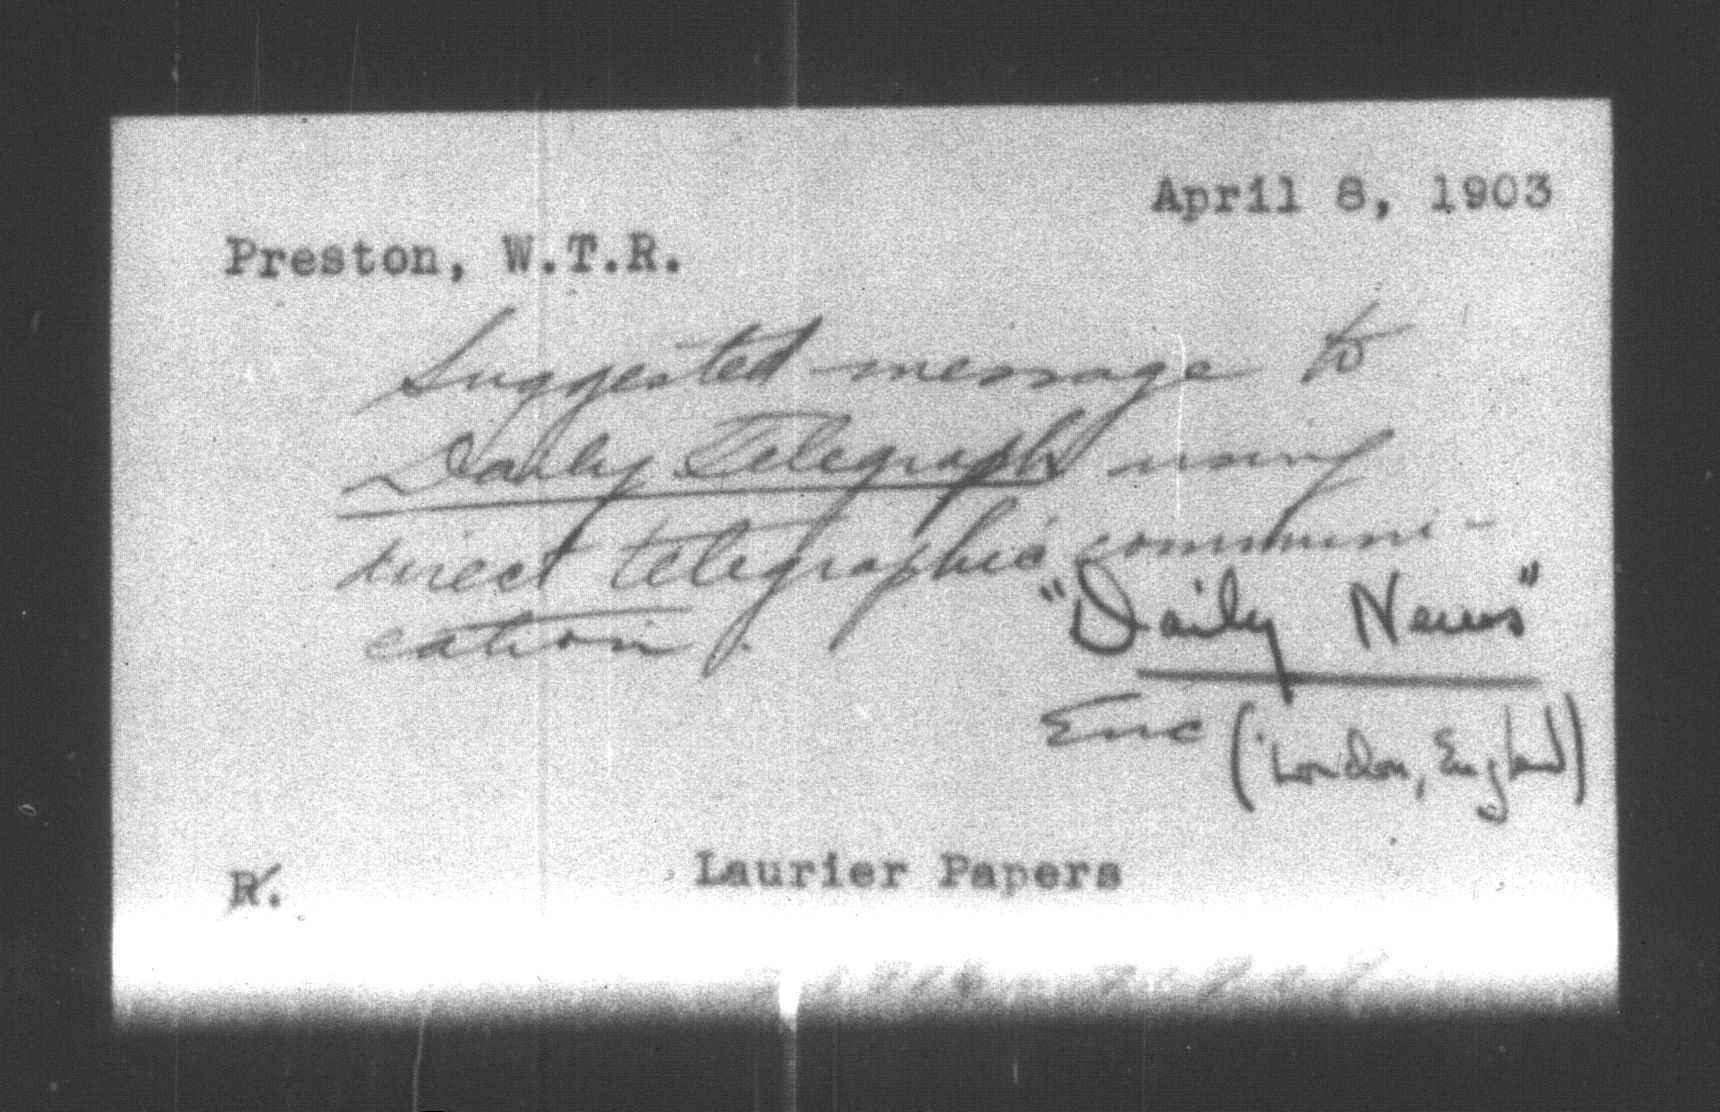 April 8, 1903
Preston, W.T.R.
Suggested message to
Daily Telegraph using
direct telegraphic communi-
cation.
"Daily News"
Enc (London, England)
R.
Laurier Papers